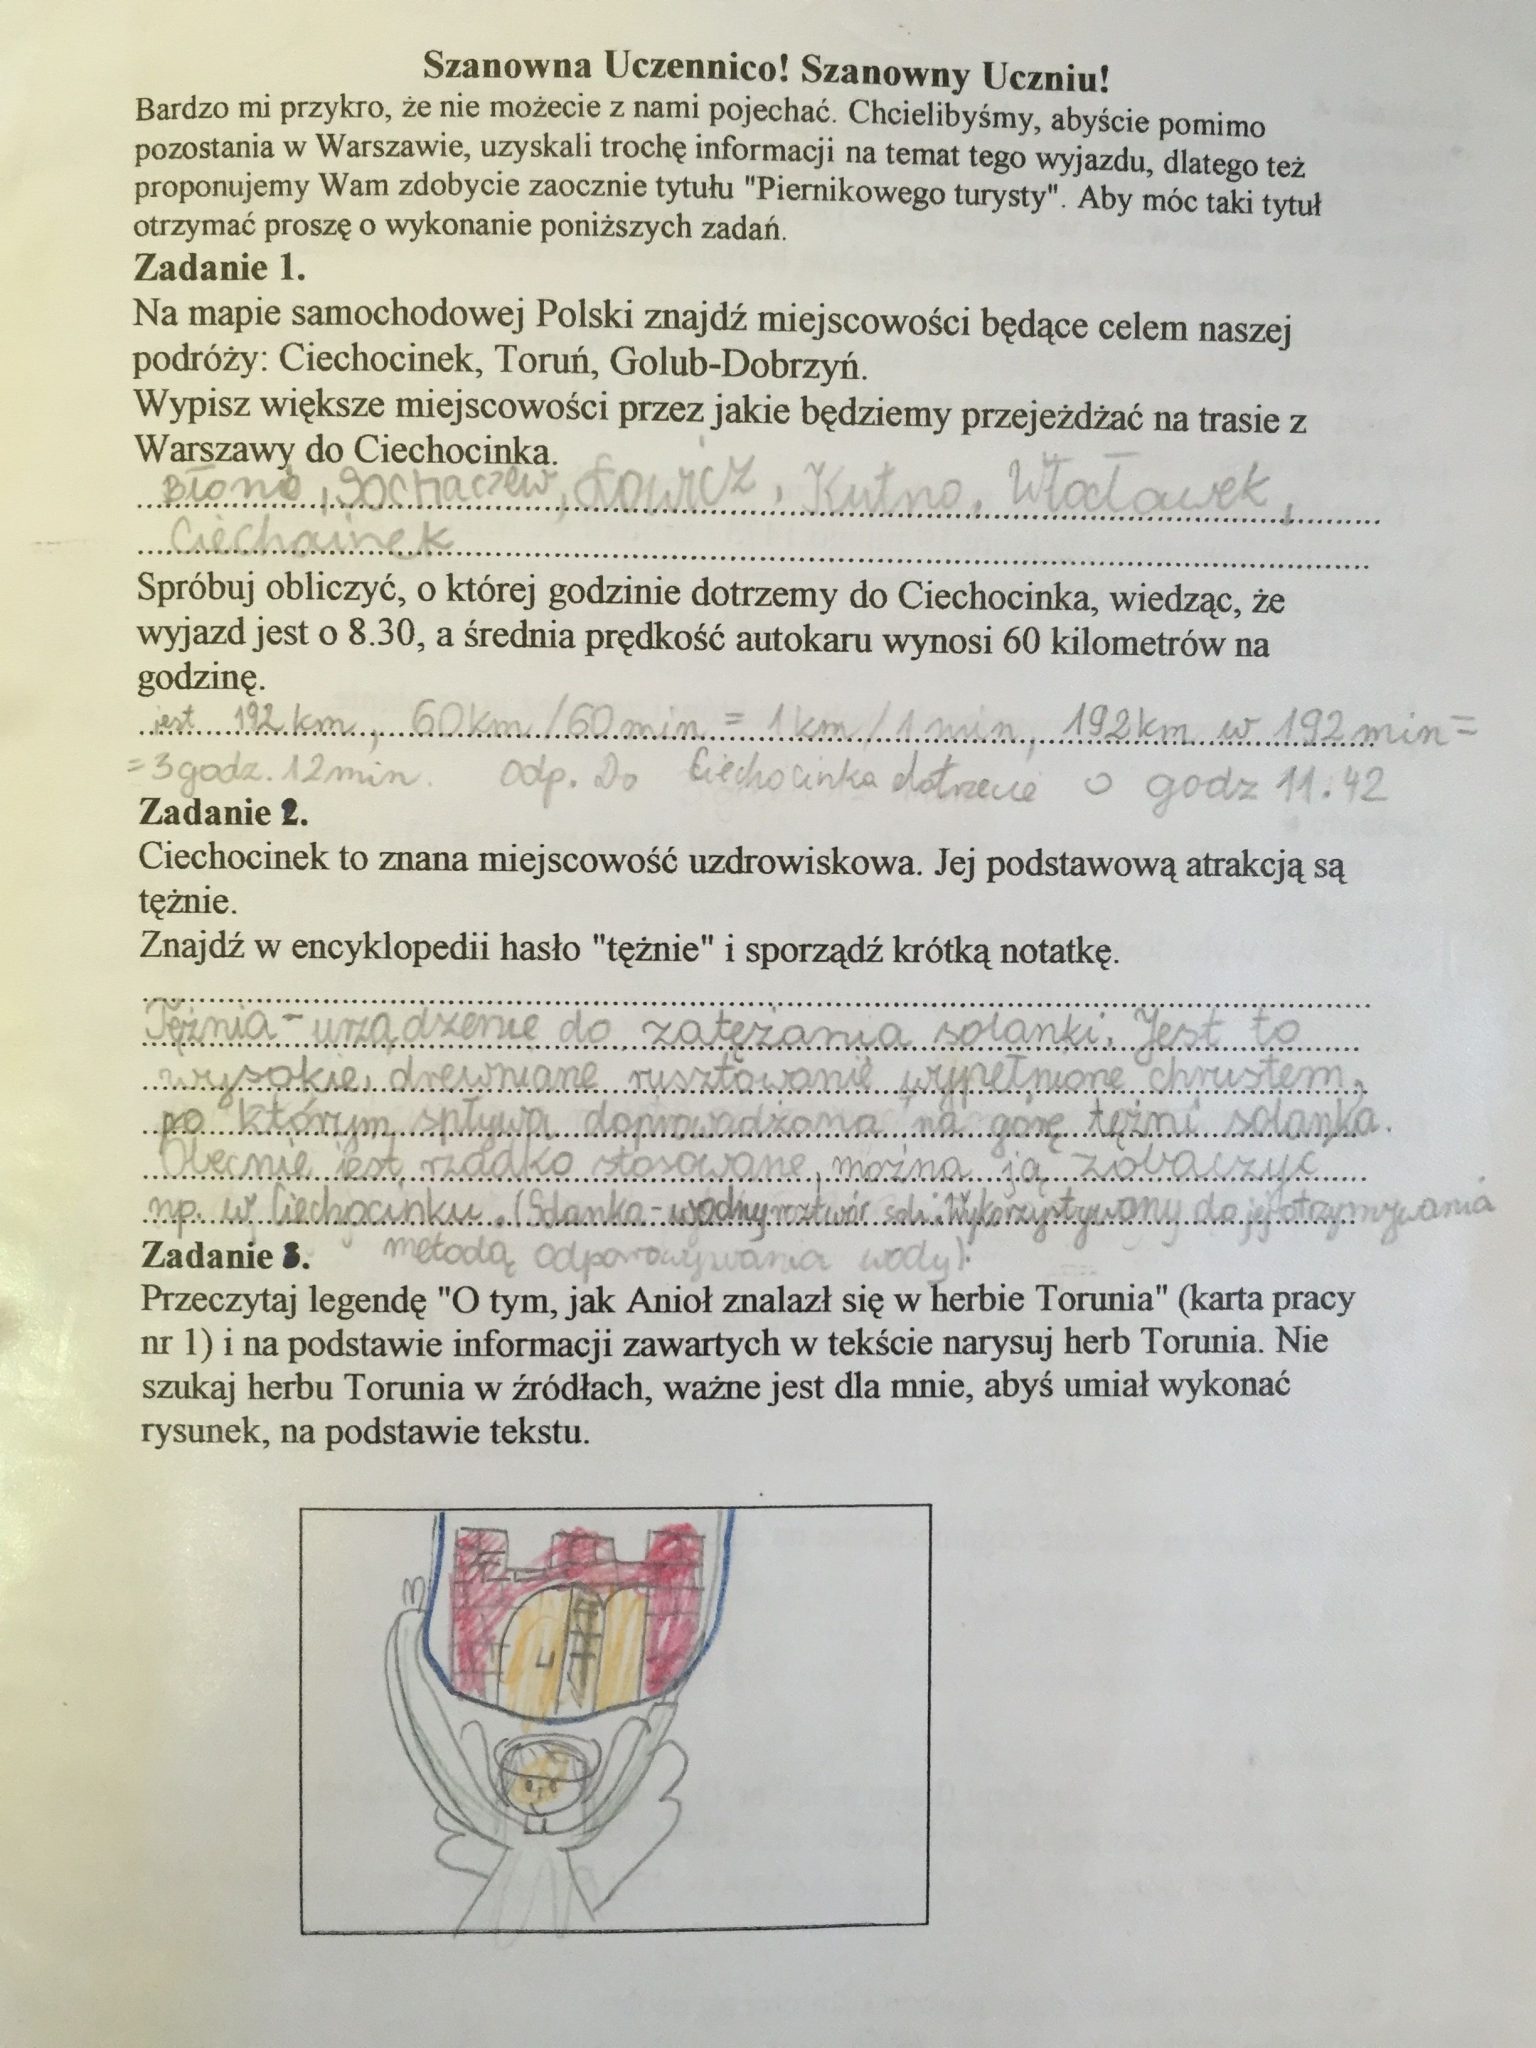 Szanowna Uczennico! Szanowny Uczniu!
Bardzo mi przykro, że nie możecie z nami pojechać. Chcielibyśmy, abyście pomimo
pozostania w Warszawie, uzyskali trochę informacji na temat tego wyjazdu, dlatego też
proponujemy Wam zdobycie zaocznie tytułu "Piernikowego turysty". Aby móc taki tytuł
otrzymać proszę o wykonanie poniższych zadań.
Zadanie 1.
Na mapie samochodowej Polski znajdź miejscowości będące celem naszej
podróży: Ciechocinek, Toruń, Golub-Dobrzyń.
Wypisz większe miejscowości przez jakie będziemy przejeżdżać na trasie z
Warszawy do Ciechocinka.
Błonie, Sochaczew, Łowicz, Kutno, Włocławek,
Ciechocinek
Spróbuj obliczyć, o której godzinie dotrzemy do Ciechocinka, wiedząc, że
wyjazd jest o 8.30, a średnia prędkość autokaru wynosi 60 kilometrów na
godzinę.
jest 192 km, 60km/60min = 1km/1min, 192km w 192min=
=3godz. 12min. Odp. Do Ciechocinka dotrzecie o godz 11.42
Zadanie 2.
Ciechocinek to znana miejscowość uzdrowiskowa. Jej podstawową atrakcją są
tężnie.
Znajdź w encyklopedii hasło "tężnie" i sporządź krótką notatkę.
Tężnia - urządzenie do zatężania solanki. Jest to
wysokie, drewniane rusztowanie wypełnione chrustem,
po którym spływa doprowadzona na górę tężni solanka.
Obecnie jest rzadko stosowane, można ją zobaczyć
np. w Ciechocinku. (Solanka - wodny roztwór soli. Wykorzystywany do jej otrzymywania
metodą odparowywania wody).
Zadanie 3.
Przeczytaj legendę "O tym, jak Anioł znalazł się w herbie Torunia" (karta pracy
nr 1) i na podstawie informacji zawartych w tekście narysuj herb Torunia. Nie
szukaj herbu Torunia w źródłach, ważne jest dla mnie, abyś umiał wykonać
rysunek, na podstawie tekstu.